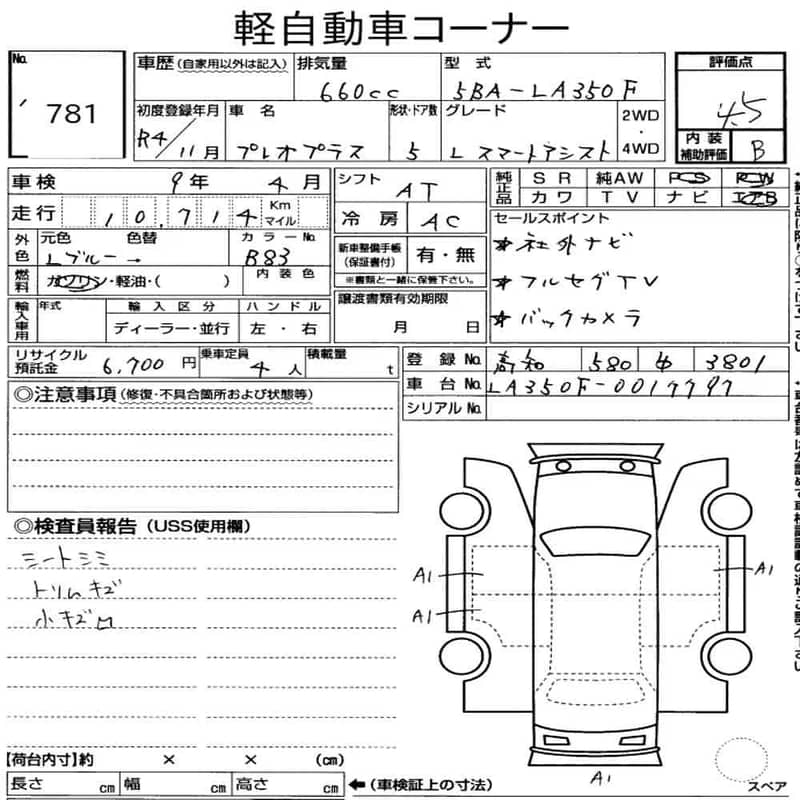 軽自動車コーナー
No. 781
車歴 (自家用以外は記入) 排気量 660cc 型式 5BA-LA350F
評価点 4.5
初度登録年月 R4/11月 車名 プレオプラス 形状・ドア数 5 グレード L スマートアシスト 2WD・4WD
内装補助評価 B
車検 9年 4月 シフト AT
純正品 SR 純AW PS PW
カワ TV ナビ エアB
走行 10,714 Km マイル 冷房 AC
セールスポイント
外色 元色 Lブルー→ 色替 カラーNo. B83
新車整備手帳(保証書付) 有・無
※書類と一緒に保管下さい。
★社外ナビ
★フルセグTV
★バックカメラ
燃料 ガソリン・軽油・( ) 内装色
譲渡書類有効期限 月 日
輸入車用 年式 輸入区分 ハンドル
ディーラー・並行 左・右
リサイクル預託金 6,700円 乗車定員 4人 積載量 t
登録No. 高知 580 
車台No. LA350F-
シリアルNo.
◎注意事項(修復・不具合箇所および状態等)
◎検査員報告(USS使用欄)
シートシミ
トリムキズ
小キズ凹
A1
A1
A1
A1
スペア
【荷台内寸】約 × × (cm)
長さ cm 幅 cm 高さ cm ←(車検証上の寸法)